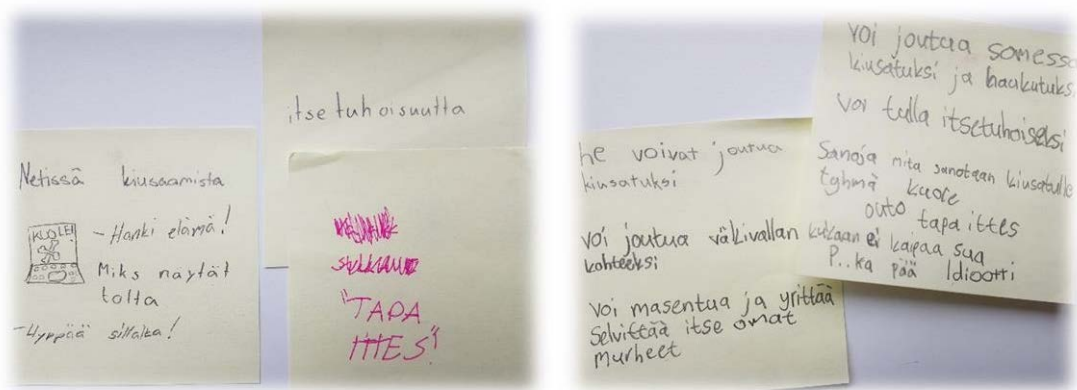 itse tuhoisuutta
Netissä kiusaamista
KUOLE!
- Hanki elämä!
Miks näytät
tolta
- Hyppää sillalta!
"TAPA
ITTES"
he voivat joutua
kiusatuksi
voi joutua väkivallan
kohteeksi
voi masentua ja yrittää
selvittää itse omat
murheet
voi joutua somessa
kiusatuksi ja haukutuksi
voi tulla itsetuhoiseksi
Sanoja mitä sanotaan kiusatulle
tyhmä kuole
outo tapa ittes
kukaan ei kaipaa sua
P..ka pää Idiootti